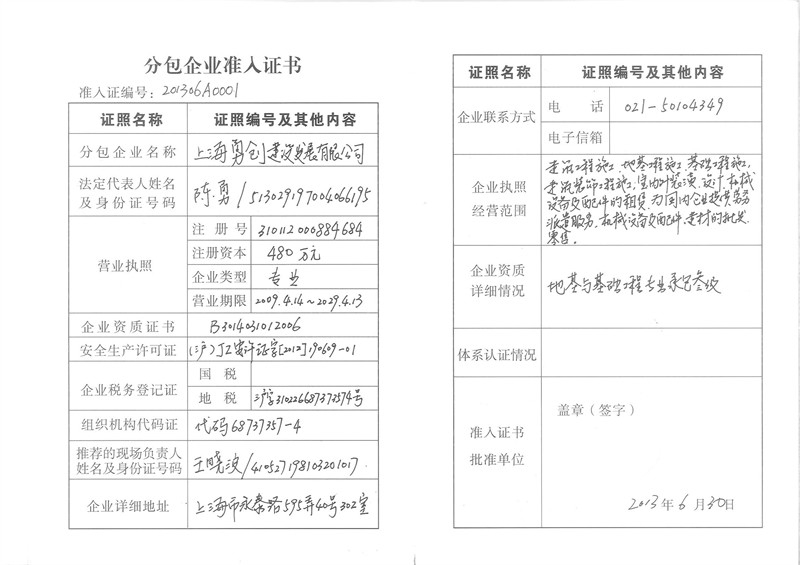 分包企业准入证书
准入证编号：201306A0001
证照名称 证照编号及其他内容
分包企业名称 上海勇创建设发展有限公司
法定代表人姓名
及身份证号码 陈勇/513029197004066195
营业执照
注册号 310112000884684
注册资本 480万元
企业类型 专业
营业期限 2009.4.14~2029.4.13
企业资质证书 B3014031012006
安全生产许可证 (沪)JZ安许证字[2012]190609-01
企业税务登记证
国税
地税 沪字310226687373574号
组织机构代码证 代码68737357-4
推荐的现场负责人
姓名及身份证号码 王晓波/410527198103201017
企业详细地址 上海市永泰路595弄40号302室
证照名称 证照编号及其他内容
企业联系方式
电话 021-50104349
电子信箱
企业执照
经营范围
建筑工程施工、地基工程施工、基础工程施工,
建筑装饰工程施工,室内外装潢、设计,机械
设备及配件的租赁,为国内企业提供劳务
派遣服务,机械设备及配件、建材的批发、
零售。
企业资质
详细情况 地基与基础工程专业承包叁级
体系认证情况
准入证书
批准单位
盖章（签字）
2013年6月30日